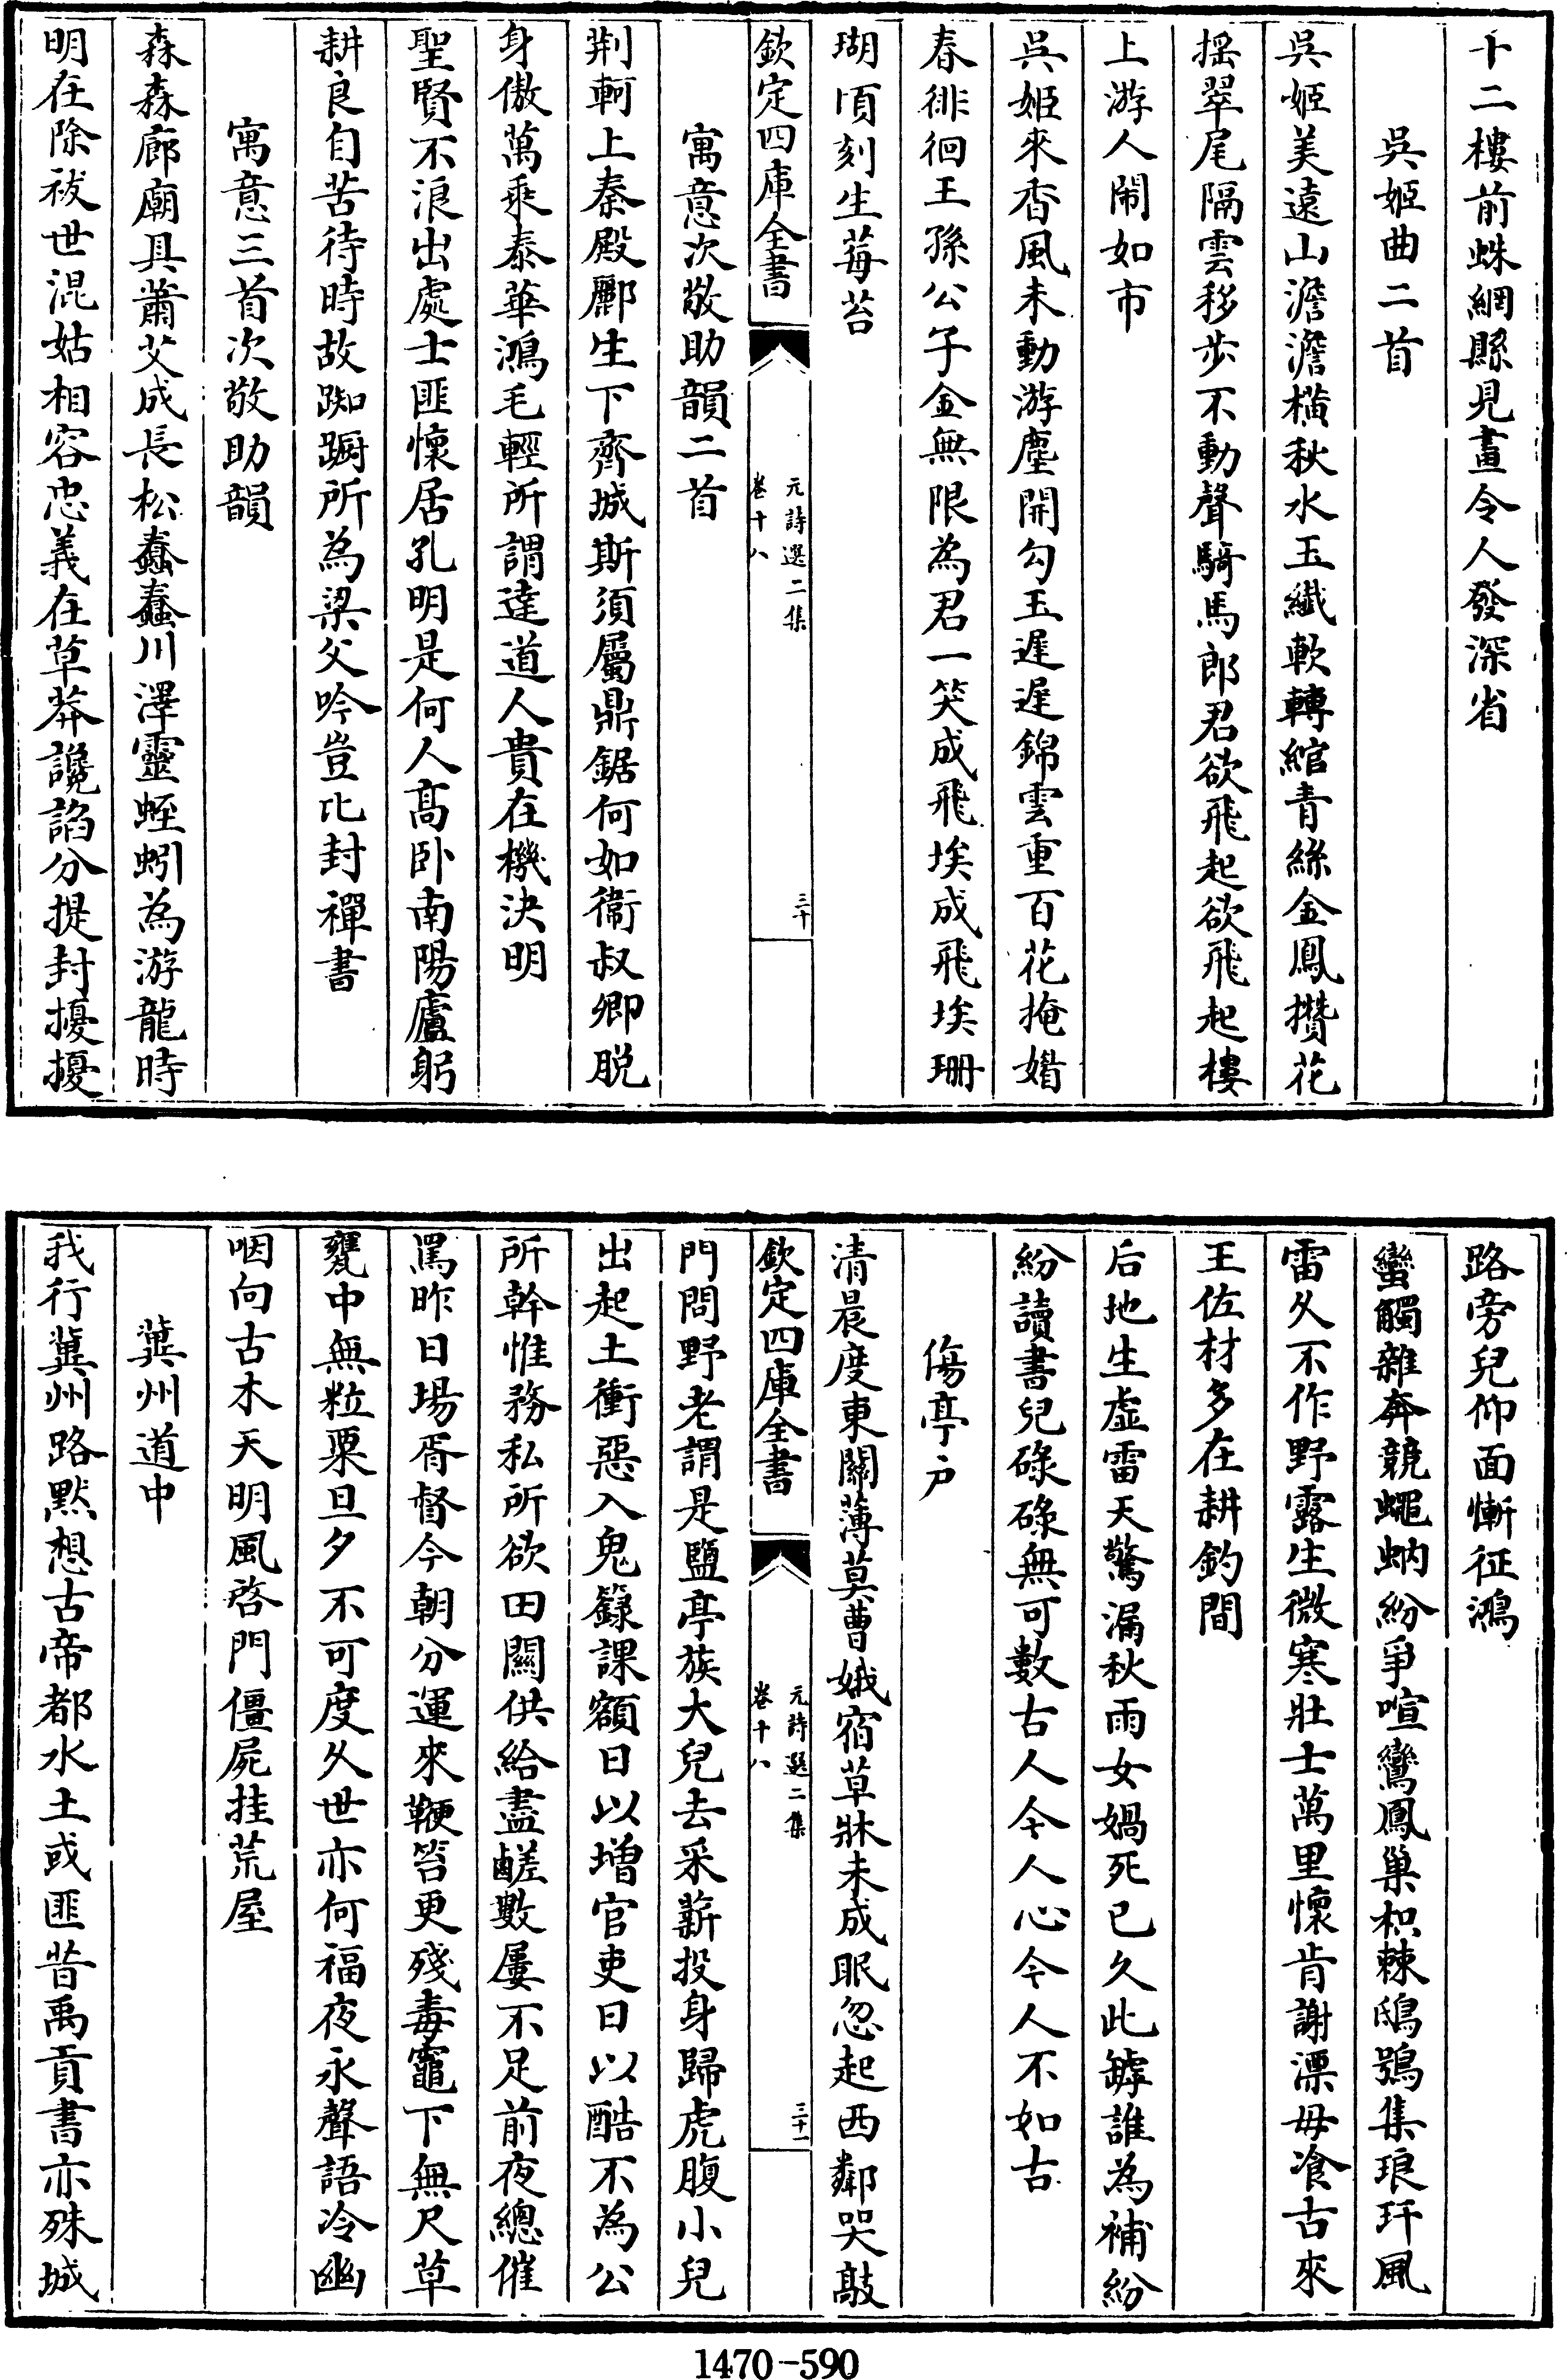 十二樓前蛛網縣見畫令人發深省
吳姬曲二首
吳姬美遠山澹澹橫秋水玉纖軟轉綰青絲金鳳攢花
揺翠尾隔雲移步不動聲騎馬郎君欲飛起欲飛起樓
上游人閙如市
吳姬來香風未動游塵開勾玉遲遲錦雲重百花掩㛫
春徘徊王孫公子金無限為君一笑成飛埃成飛埃珊
瑚頃刻生莓苔
欽定四庫全書
元詩選二集
卷十八
三十
寓意次敬助韻二首
荆軻上秦殿酈生下齊城斯須屬鼎鋸何如衞叔卿脱
身傲萬乘泰華鴻毛輕所謂達道人貴在機決明
聖賢不浪出處士匪懷居孔明是何人髙卧南陽廬躬
耕良自苦待時故踟蹰所為梁父吟豈比封禪書
寓意三首次敬助韻
森森廊廟具蕭艾成長松蠢蠢川澤靈蛭蚓為游龍時
明在除祓世混姑相容忠義在草莽讒諂分提封擾擾
路旁兒仰面慚征鴻
蠻觸雜奔競蠅蚋紛爭喧鸞鳳巢枳棘鴟鴞集琅玕風
雷久不作野露生微寒壯士萬里懷肯謝漂母飡古來
王佐材多在耕釣間
后地生虛雷天驚漏秋雨女媧死已久此罅誰為補紛
紛讀書兒碌碌無可數古人今人心今人不如古
傷亭户
清晨度東關薄莫曹娥宿草牀未成眠忽起西鄰哭敲
欽定四庫全書
元詩選二集
卷十八
三十一
門問野老謂是鹽亭族大兒去采薪投身歸虎腹小兒
出起土衝惡入鬼籙課額日以増官吏日以酷不為公
所幹惟務私所欲田關供給盡鹺數屢不足前夜總催
罵昨日場胥督今朝分運來鞭笞更殘毒竈下無尺草
甕中無粒粟旦夕不可度久世亦何福夜永聲語冷幽
咽向古木天明風啓門僵屍挂荒屋
冀州道中
我行冀州路黙想古帝都水土或匪昔禹貢書亦殊城
1470-590